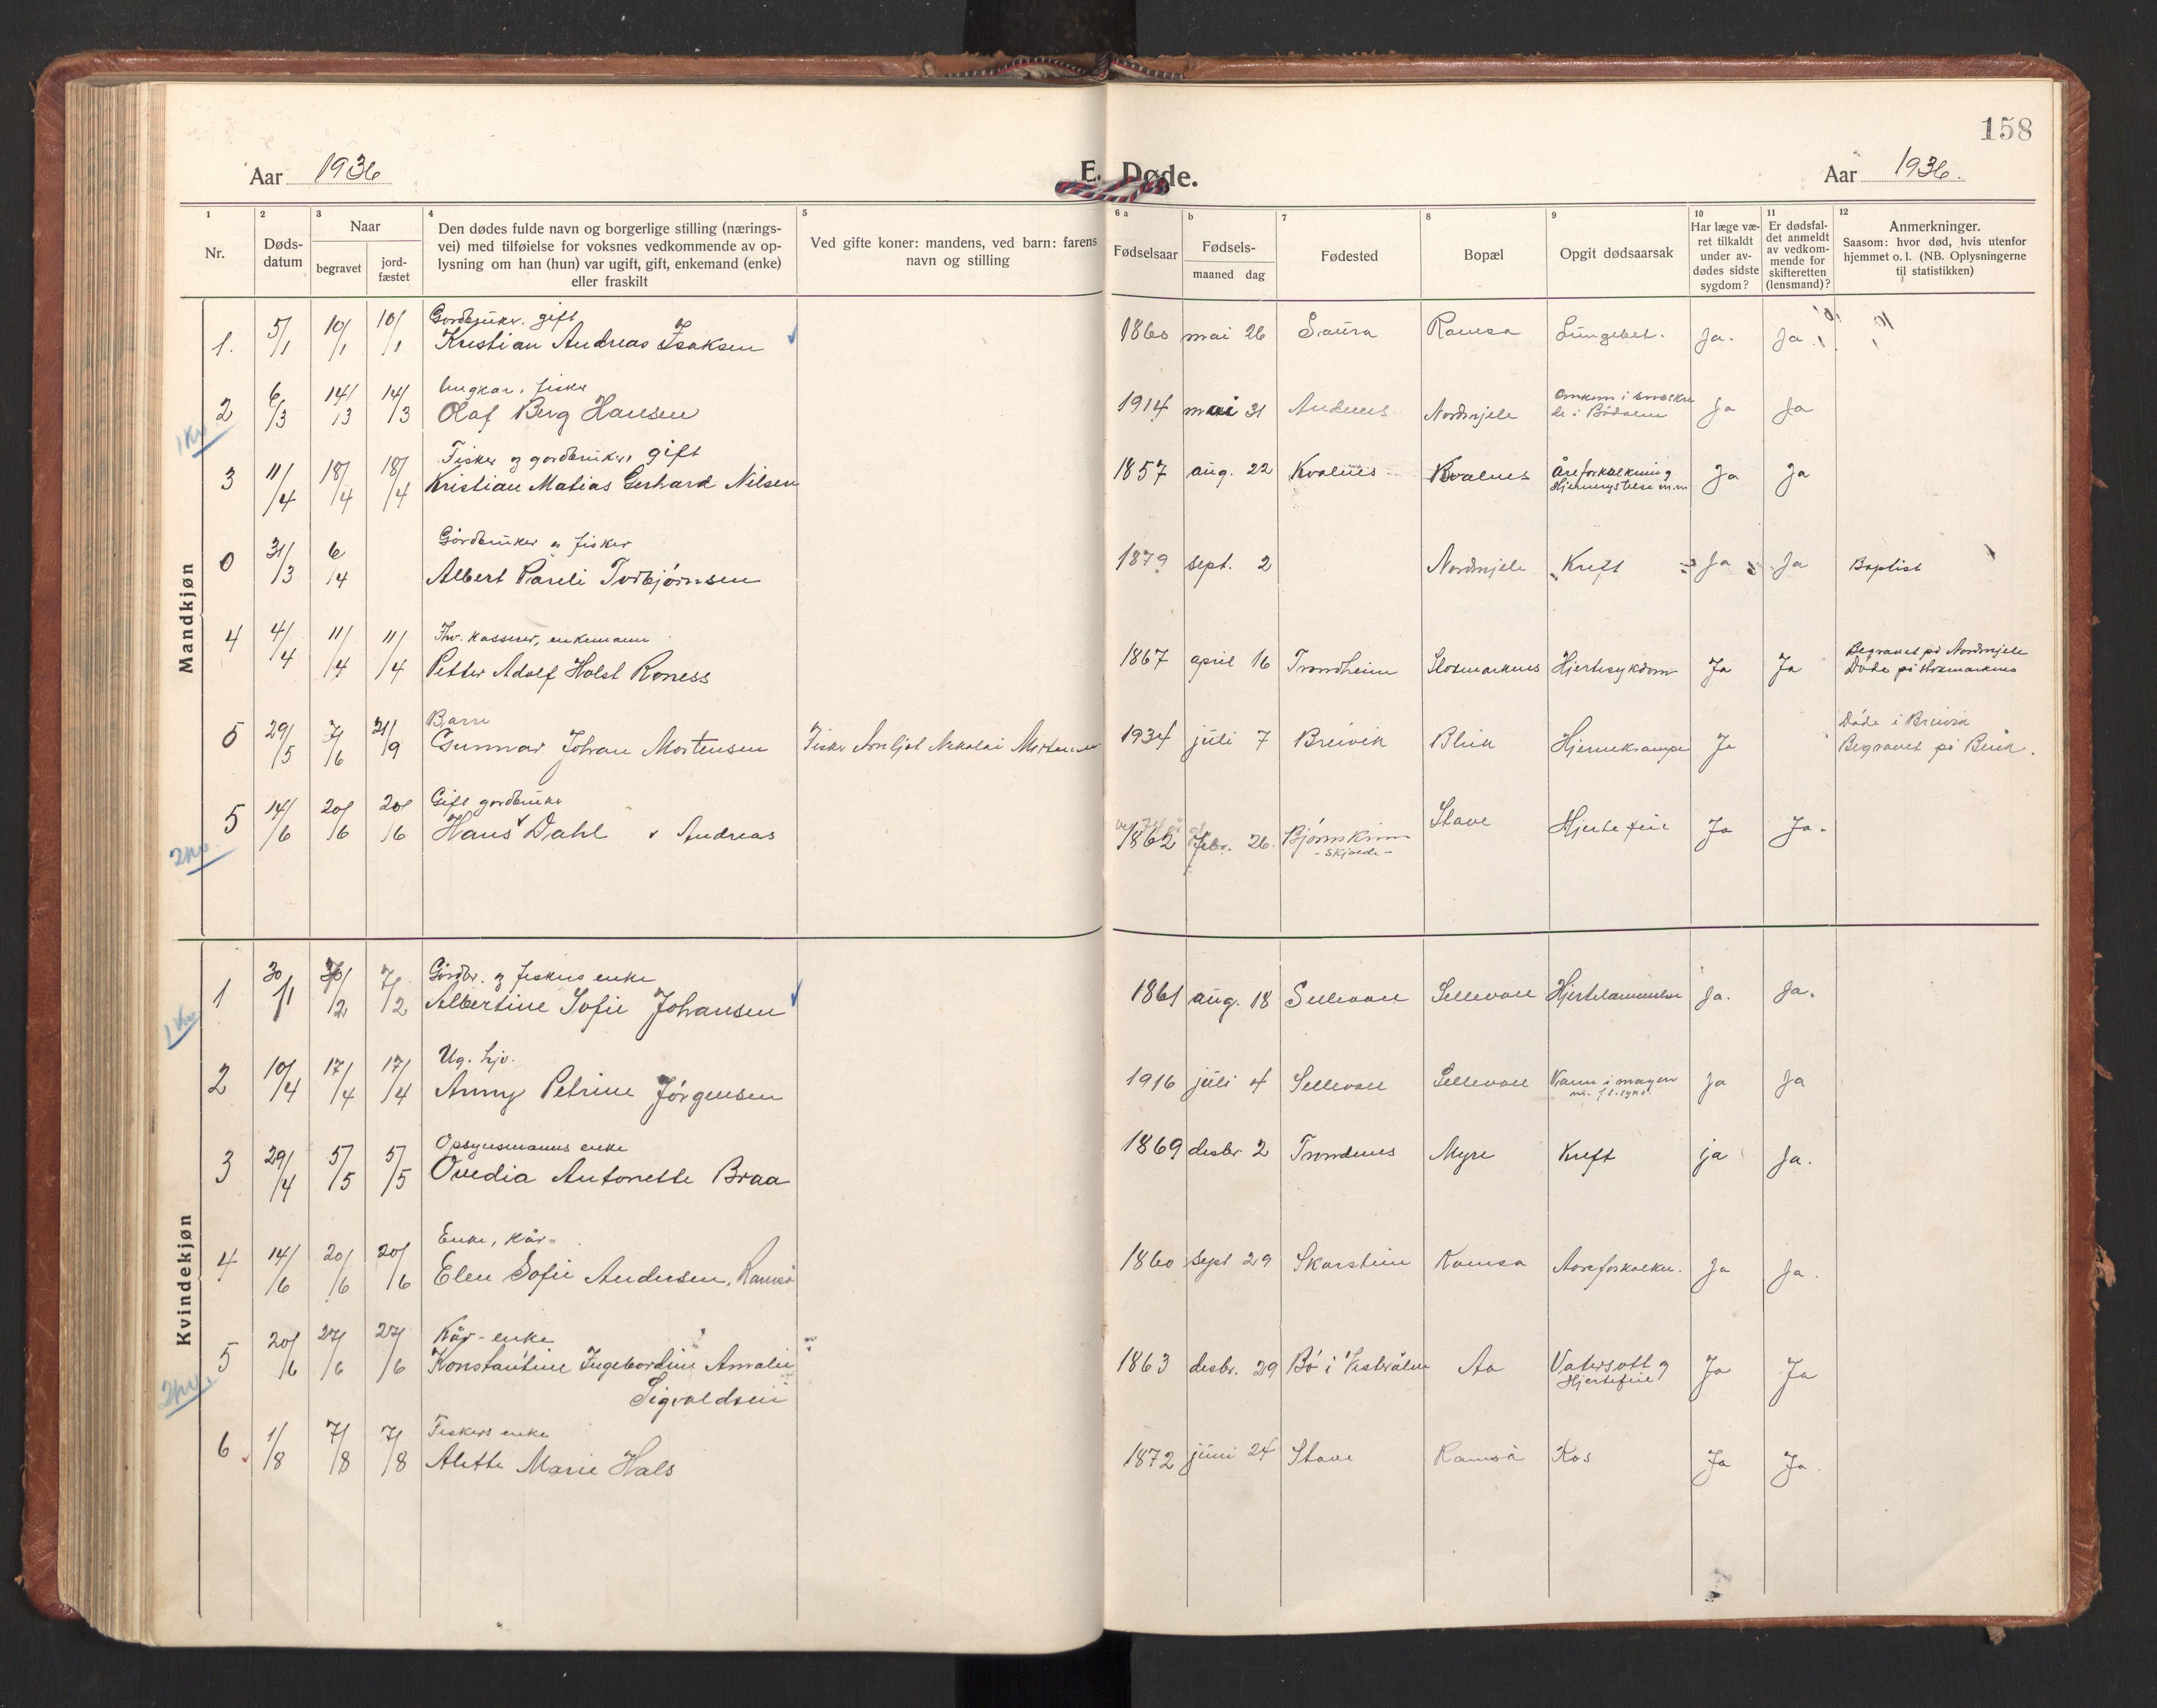 158
Aar 1936
E. Døde.
Aar 1936.
1 Nr.
2 Døds-datum
3 Naar
begravet
jord-fæstet
4 Den dødes fulde navn og borgerlige stilling (nærings-
vei) med tilføielse for voksnes vedkommende av op-
lysning om han (hun) var ugift, gift, enkemand (enke)
eller fraskilt
5 Ved gifte koner: mandens, ved barn: farens
navn og stilling
6 a Fødselsaar
b Fødsels-
maaned dag
7 Fødested
8 Bopæl
9 Opgit dødsaarsak
10 Har læge væ-
ret tilkaldt
under av-
dødes sidste
sygdom?
11 Er dødsfal-
det anmeldt
av vedkom-
mende for
skifteretten
(lensmand)?
12 Anmerkninger.
Saasom: hvor død, hvis utenfor
hjemmet o. l. (NB. Oplysningerne
til statistikken)
Mandkjøn
Gordbruker. gift
1. 5/1 10/1 10/1 Kristian Andreas Isaksen 1860 mai 26 Saura Ramsa Lungebet. Ja. Ja
Ungkar, fisker
2 6/3 14/3 14/3 Olaf Berg Hansen 1914 mai 31 Andenes Nordmjele Omkom i sneskre
de i Bødalen Ja Ja
1 Kv
Fisker og gordbruker, gift
3 11/4 18/4 18/4 Kristian Matias Gerhard Nilsen 1857 aug. 22 Kvalnes Kvalnes Åreforkalkning
Hjernerystelse m.m Ja Ja
Gårdbruker og fisker
0 31/3 6/4 Albert Pareli Torbjørnsen 1879 sept. 2 Nordmjele Kreft Ja Ja Baptist
Fhv. kasserer, enkemann
4 4/4 11/4 11/4 Petter Adolf Holst Roness 1867 april 16 Trondheim Stokmarknes Hjertesykdom Ja Ja Begravet på Nordmjele
Døde på Stokmarknes
Barn
5 29/5 7/6 21/9 Gunnar Johan Mortensen Fisker Arnljot Nikolai Mortensen 1934 juli 7 Breivik Bleik Hjernekrampe Ja Døde i Breivik
Begravet på Bleik.
Gift gordbruker
5 14/6 20/6 20/6 Hans Dahl Andreas 1862 febr. 26. Bjørnskinn
- Skjolde - Stave Hjertefeil Ja Ja.
2 Kv.
Kvindekjøn
Gårdbr. og fiskers enke
1 30/1 7/2 7/2 Albertine Sofie Johansen 1861 aug. 18 Sellevoll Sellevoll Hjertelammelse Ja. Ja.
1 Kv
Ug. hjv.
2 10/4 17/4 17/4 Anny Petrine Jørgensen 1916 juli 4 Sellevoll Sellevoll Vann i magen Ja Ja
Opsynsmanns enke
3 29/4 5/5 5/5 Ovedia Antonette Braa 1869 desbr. 2 Trondenes Myre Kreft ja Ja.
Enke, kår=
4 14/6 20/6 20/6 Elen Sofie Andersen, Ramså 1860 sept 29 Skarstein Ramsa Aareforkalkn. Ja Ja.
Kår-enke
5 20/6 27/6 27/6 Konstantine Ingebordine Amalie
Sigvaldsen 1863 desbr. 29 Bø i Vesterålen Aa Vatersott og
Hjertefeil Ja Ja
2 Kv.
Fiskers enke
6 1/8 7/8 7/8 Alette Marie Hals 1872 juni 24 Stave Ramså Ja Ja.